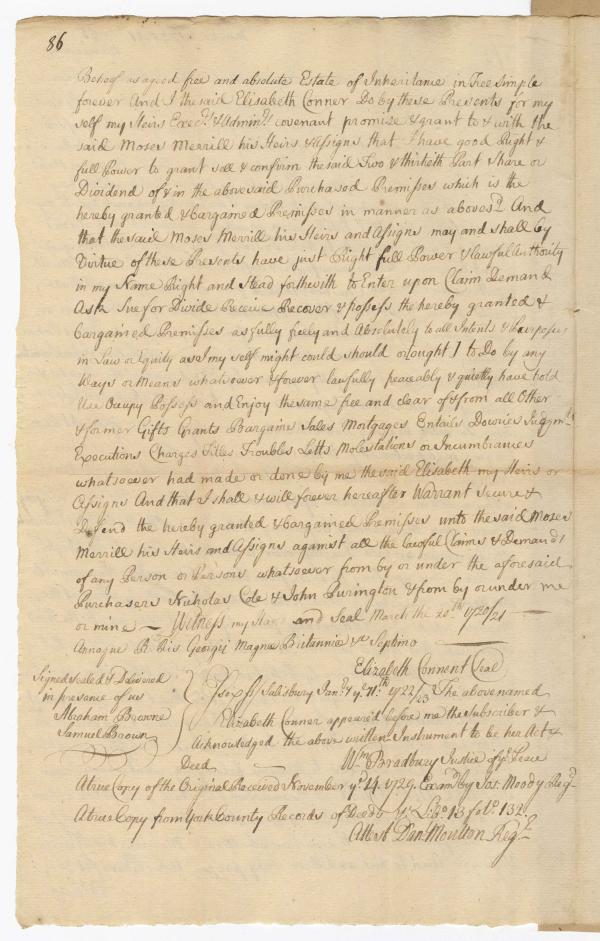 86
Behoof as a good free and absolute Estate of Inheritance in Fee Simple
forever And I the said Elisabeth Conner Do by these Presents for my
self my Heirs Execrs & Adminrs covenant promise & grant to & with the
said Moses Merrill his Heirs & Assigns that I have good Right &
full Power to grant sell & confirm the said Two & thirtieth Part Share or
Dividend of & in the abovesaid Purchased Premisses which is the
hereby granted & bargained Premisses in manner as abovesd And
that the said Moses Merrill his Heirs and Assigns may and shall by
Virtue of these Presents have just Right full Power & lawful Authority
in my Name Right and Stead forthwith to Enter upon Claim Demand
Ask Sue for Divide Receive Recover & possess the hereby granted &
bargained Premisses as fully freely and Absolutely to all Intents & Purposes
in Law or Equity as I my self might could should or ought I to Do by any
Ways or Means whatsoever & forever lawfully peaceably & quietly have hold
Use Occupy Possess and Enjoy the same free and clear of & from all Other
& former Gifts Grants Bargains Sales Mortgages Entails Dowries Judgmts
Executions Charges Titles Troubles Letts Molestations or Incumbrances
whatsoever had made or done by me the said Elisabeth my Heirs or
Assigns And that I shall & will forever hereafter Warrant Secure &
Defend the hereby granted & bargained Premisses unto the said Moses
Merrill his Heirs and Assigns against all the lawful Claims & Demands
of any Person or Persons whatsoever from by or under the aforesaid
Purchasers Nicholas Cole & John Purington & from by or under me
or mine — Witness my Hand and Seal March the 20th 1720/21 —
Annoque R. Ris Georgii Magnæ Britanniæ &c Septimo
Elizabeth Conner Seal
Signed sealed & Delivered
in presence of us
Abraham Browne
Samuel Brown
Essex ss Salisbury Janry ye 11th 1722/23 The abovenamed
Elizabeth Conner appeared before me the Subscriber &
Acknowledged the above written Instrument to be her Act &
Deed Wm Bradbury Justice of ye Peace
A true Copy of the Original Received November ye 14. 1729. Examd by Jos. Moody Regr
A true Copy from York County Records of Deeds Libo. 13 folo. 132.
Attest Danl Moulton Regr